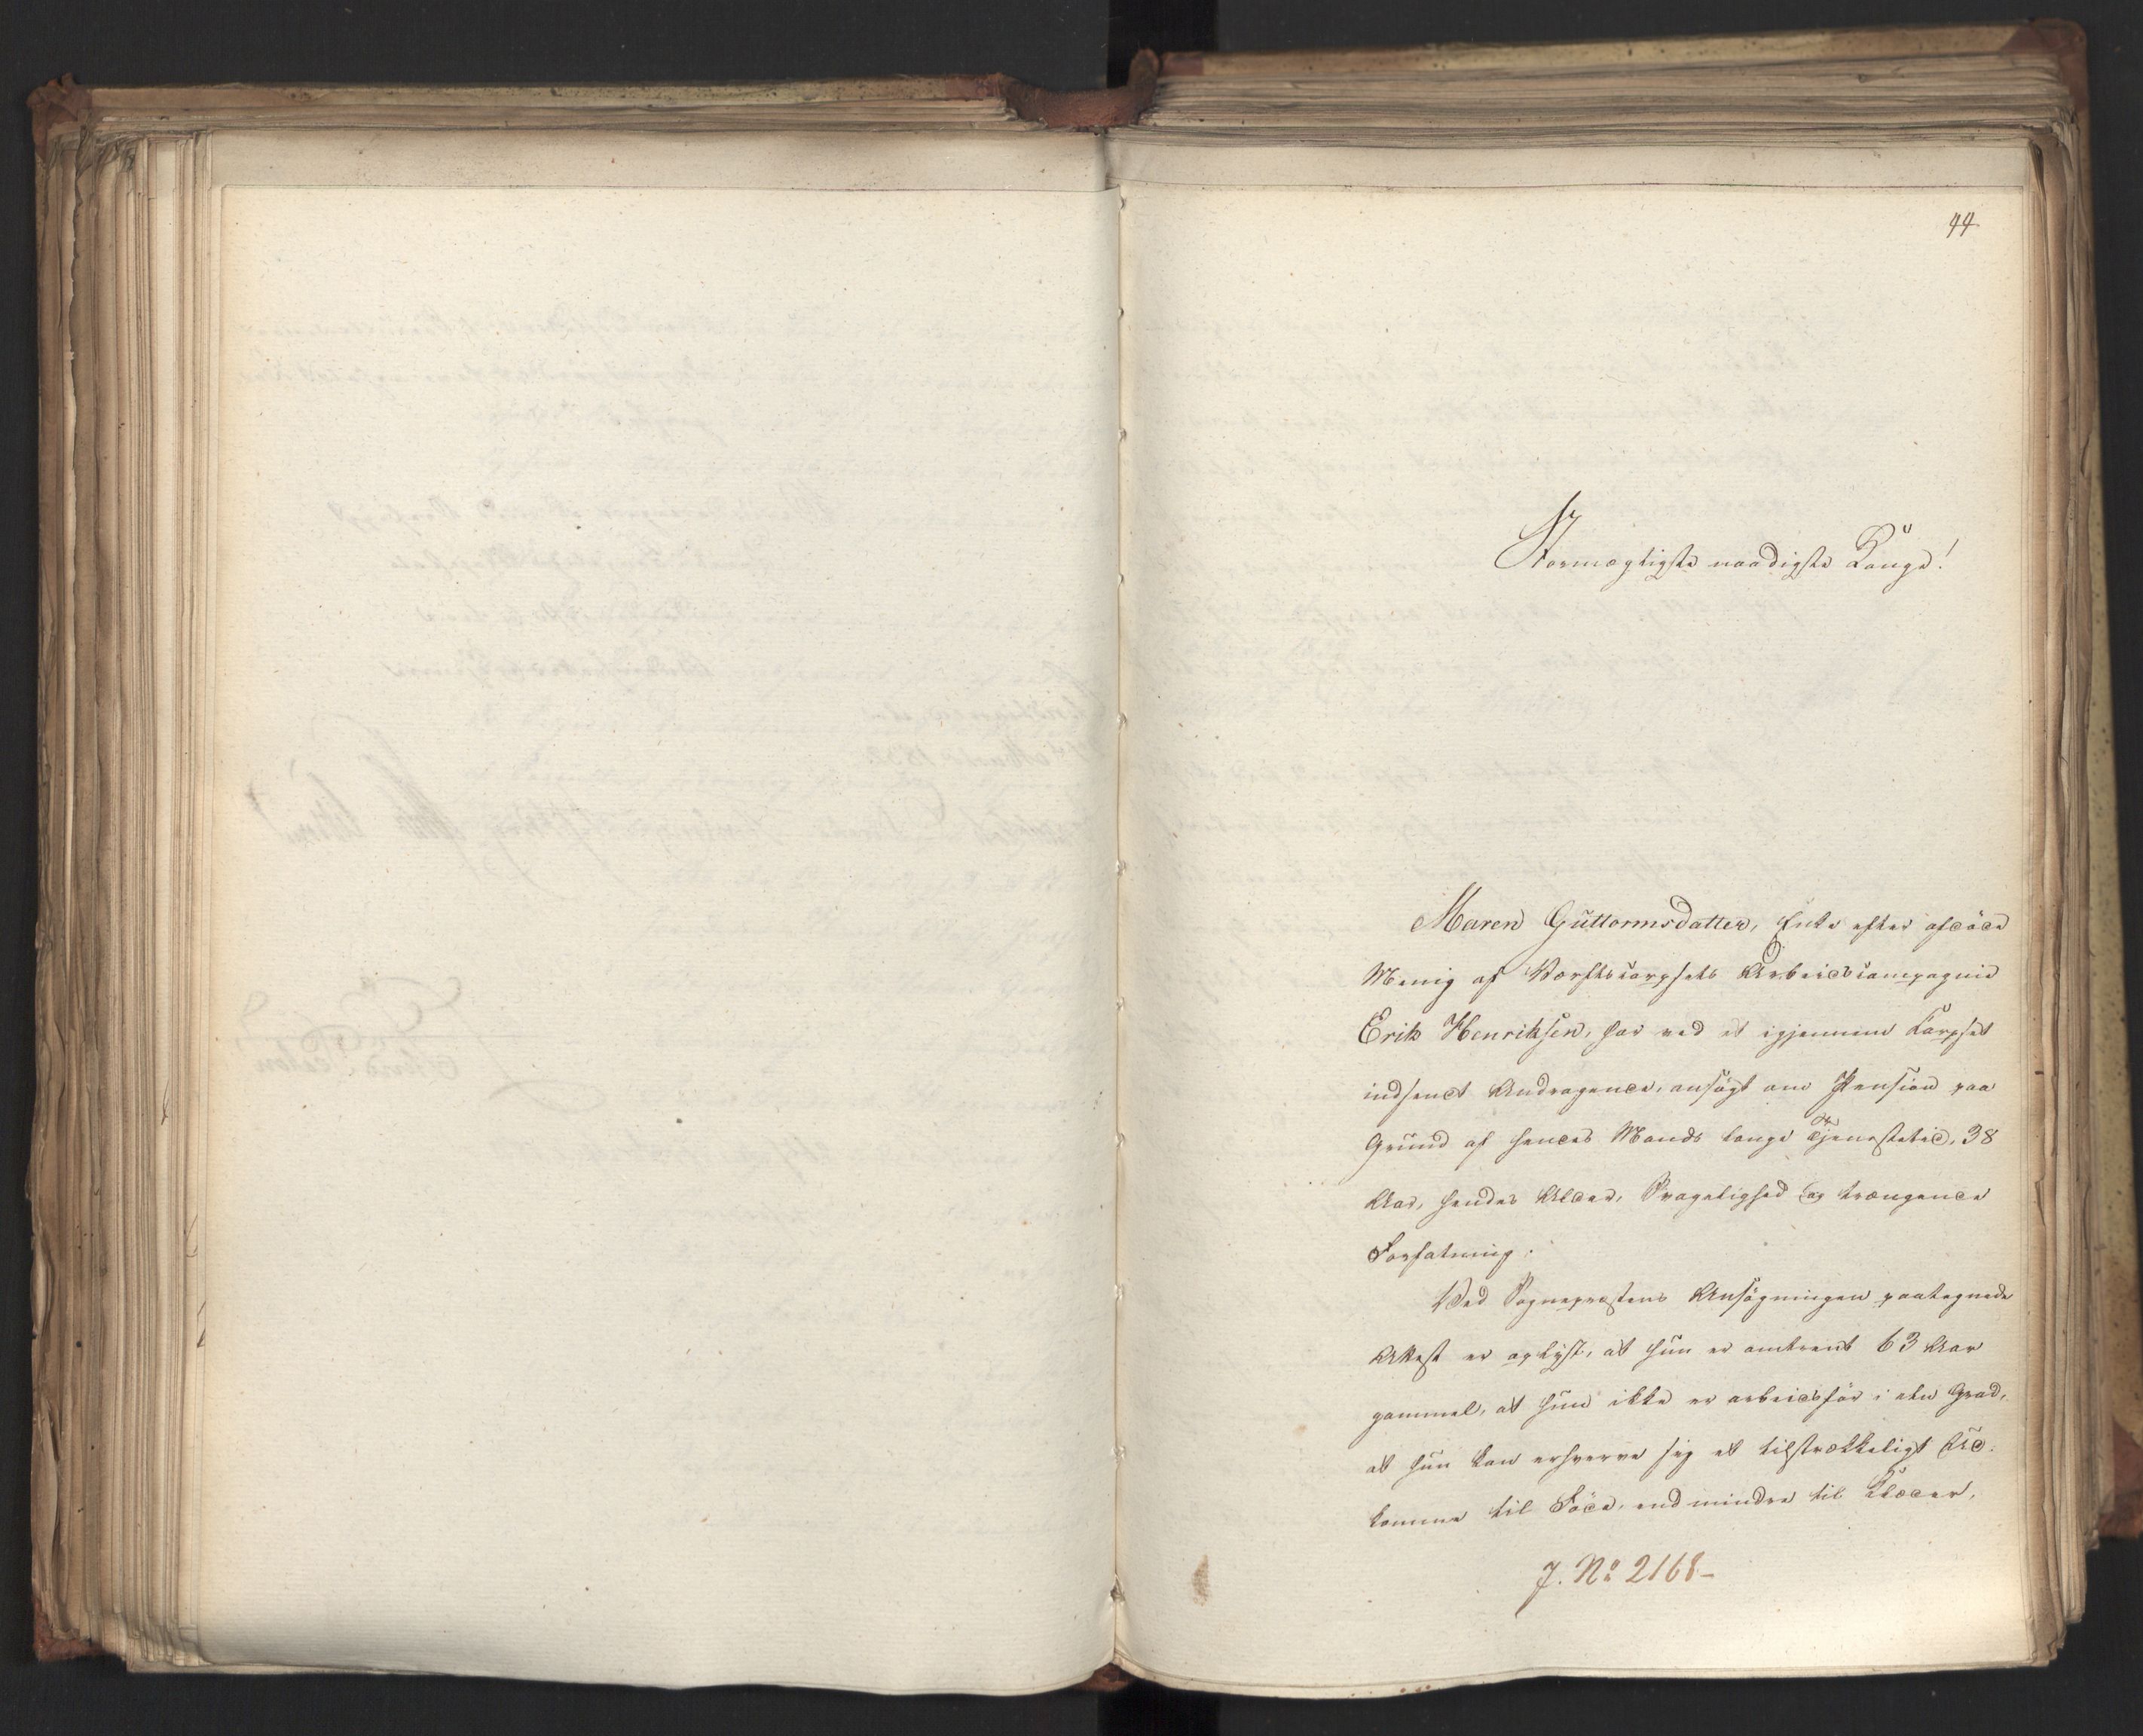 44
Stormægtigste naadigste Konge!
Maren Guttormsdatter, Enke efter afdøde
Menig af Værftscorpsets Arbeidscompagnie
Erik Henriksen, har ved et igjennem Korpset
indsendt Andragende, ansøgt om Pension paa
Grund af hendes Mands lange Tjenestetid, 38
Aar, hendes Alder, Svagelighed og trængende
Forfatning.
Ved Sognepræstens Ansøgningen paategnede
Attest er oplyst, at hun er omtrent 63 Aar
gammel, at hun ikke er arbeidsfør i den Grad,
at hun kan erhverve sig et tilstrækkeligt Ud-
komme til Føde, end mindre til Klæder,
J. No 2168-